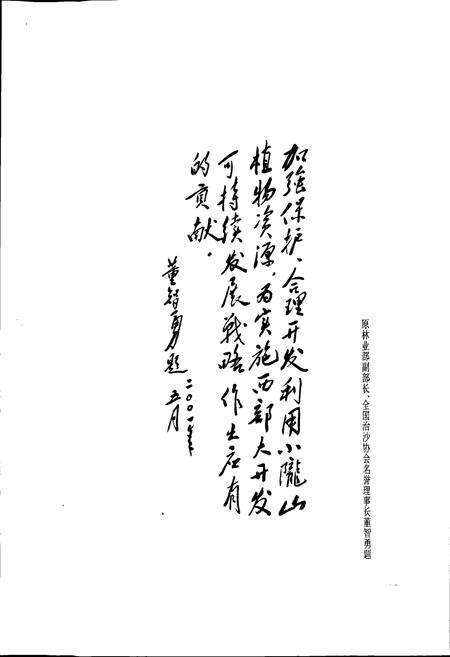 原林业部副部长、全国治沙协会名誉理事长董智勇题
加强保护、合理开发利用小陇山
植物资源，为实施西部大开发
可持续发展战略作出应有
的贡献。
董智勇题
二〇〇一年
五月